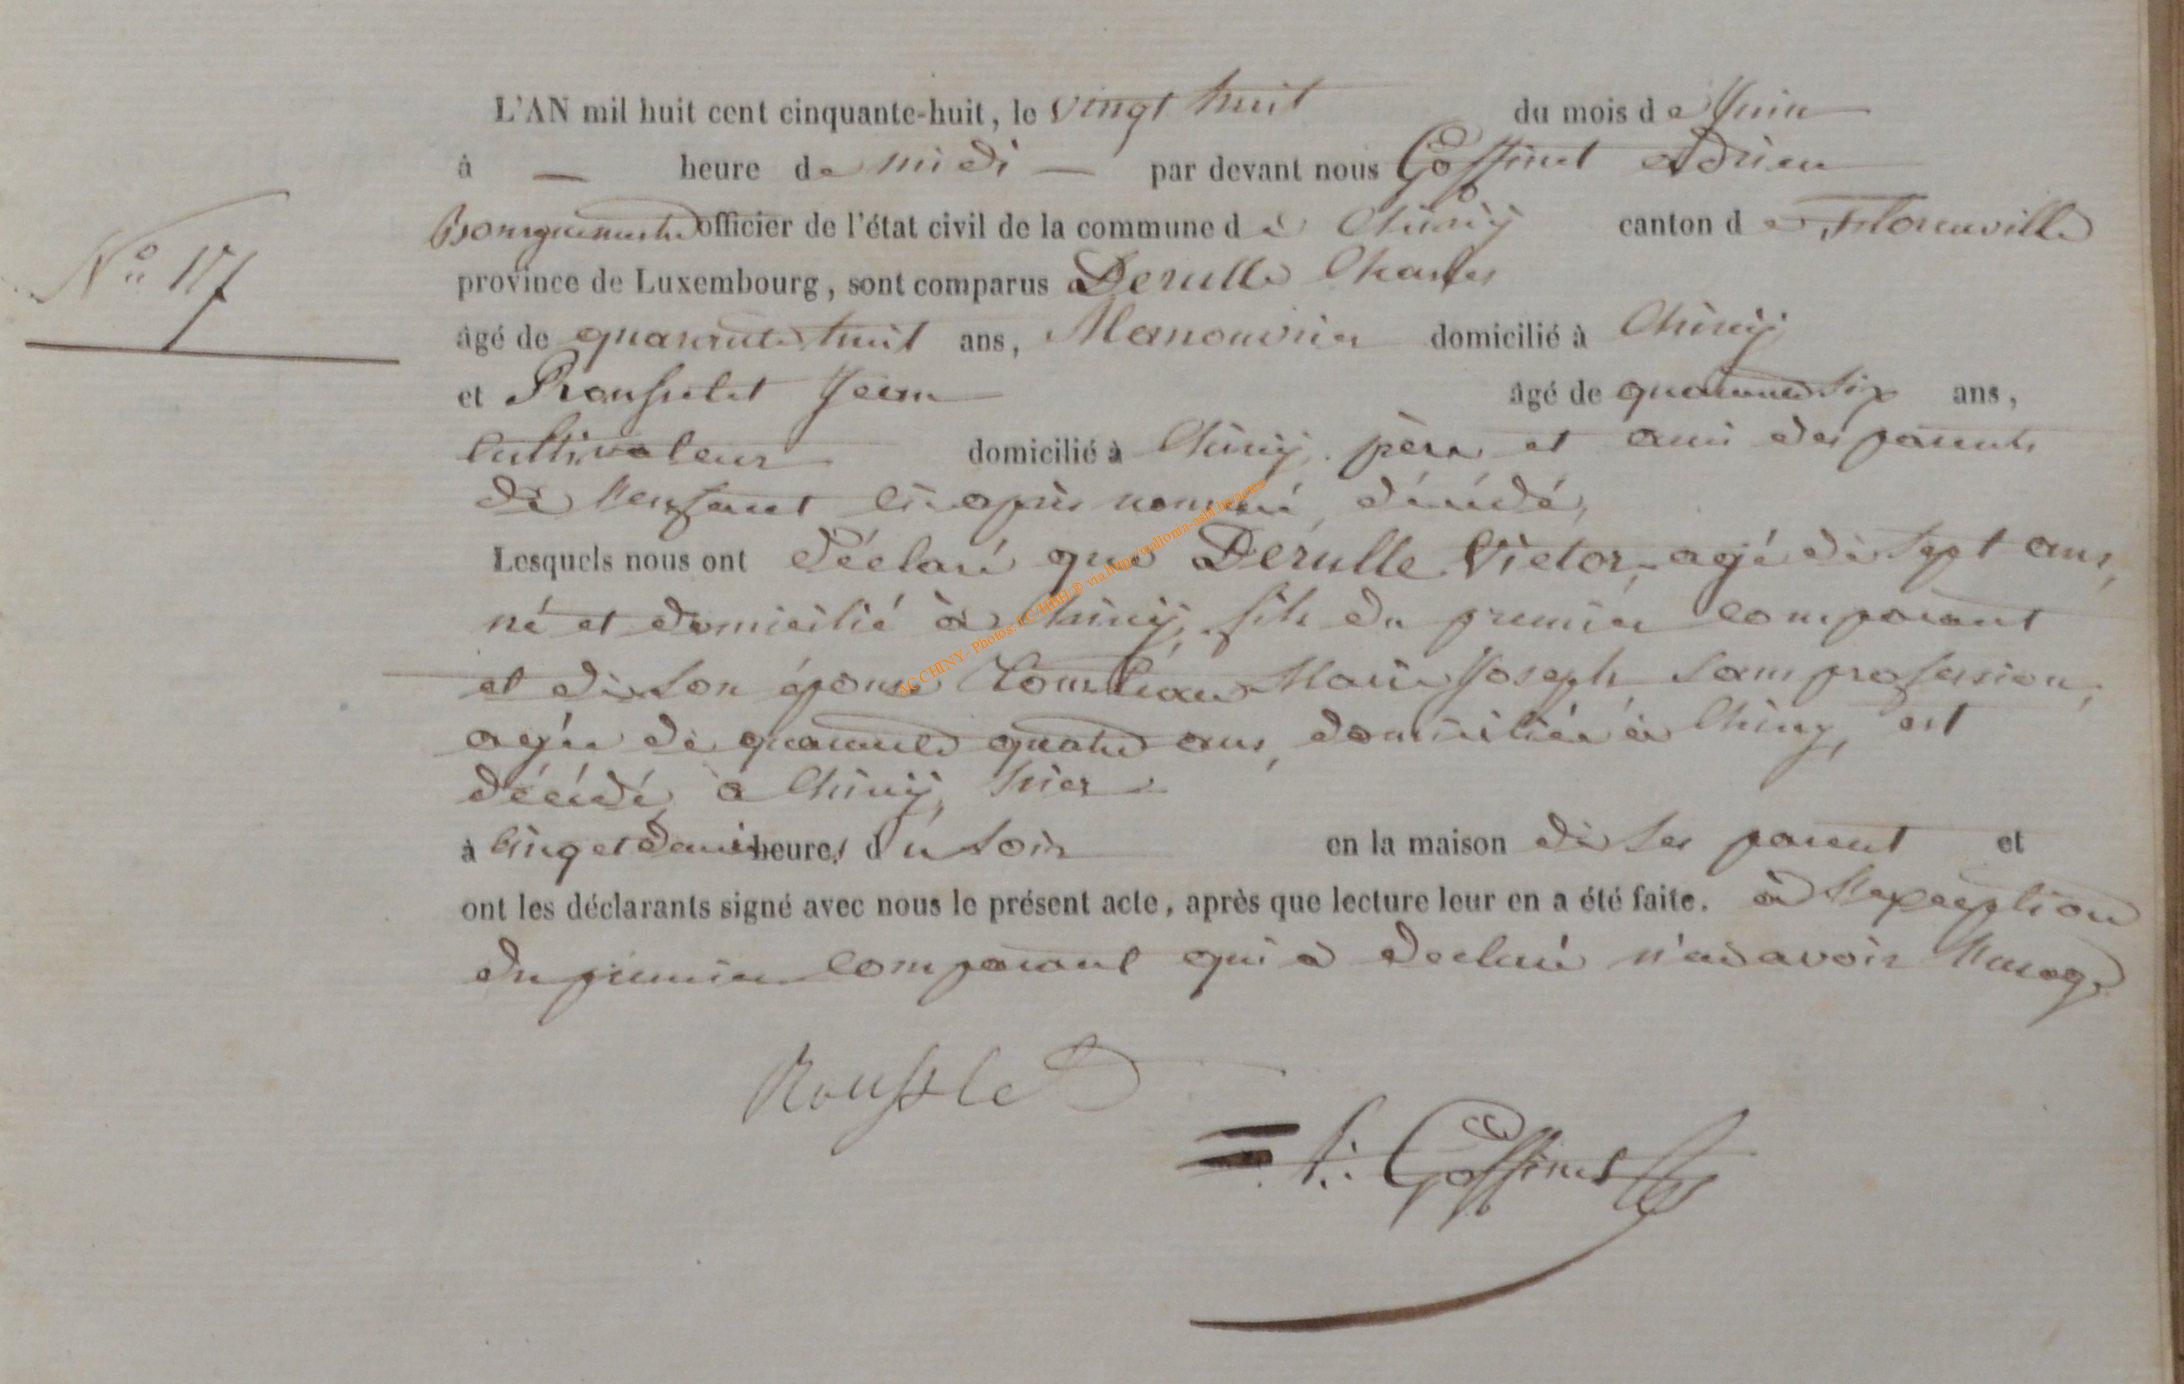 L'AN mil huit cent cinquante-huit, le vingt huit du mois de Juin
à — heure de midi — par devant nous Goffinet Adrien
Bourguemestre officier de l'état civil de la commune de Chiny canton de Florenville
province de Luxembourg, sont comparus Derulle Charles
âgé de quarante huit ans, Manouvrier domicilié à Chiny
N° 17
et Rousselet Jean âgé de quarante six ans,
Cultivateur domicilié à Chiny, père et ami des parents
de l'enfant ci après nommé, décédé,
Lesquels nous ont déclaré que Derulle Victor, agé de sept ans,
né et domicilié à Chiny, fils du premier comparant
et de son épouse Marie Joseph, sans profession,
agée de quarante quatre ans, domiciliée à Chiny, est
décédé à Chiny, hier
à cinq et demi heures du soir en la maison de ses parent et
ont les déclarants signé avec nous le présent acte, après que lecture leur en a été faite. à l'exception
du premier comparant qui a declaré n'en avoir l'usage
Rousslet
A. Goffinet
AC CHINY - Photos